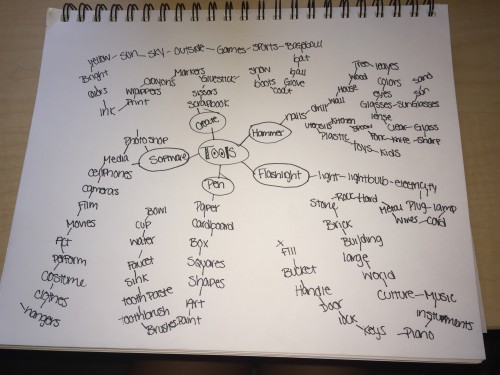 yellow - sun - sky - outside - Games - sports - Baseball
Bright
colors
ink
Print
wrappers
crayons
Markers
Gluestick
scissors
Scrapbook
Create
snow
boots
coat
Glove
ball
bat
Tools
Hammer
nails
drill
wall
House
wood
Tree
leaves
colors
eyes
Glasses - sunGlasses
sun
sand
lense
Clear - Glass
Sharp
knife
Fork
spoon
Kitchen
utensils
Plastic
toys - kids
Software
Photoshop
Media
cellphones
cameras
Film
Movies
Act
Perform
Costume
clothes
hangers
Pen
Paper
Cardboard
Box
Squares
Shapes
Art
Paint
Brushes
toothbrush
toothpaste
sink
Faucet
water
cup
Bowl
Flashlight - light - lightbulb - electricity
Plug - lamp
cord
wires
Metal
Hard
Rock
Stone
Brick
Building
large
World
Culture - Music
instruments
Piano
keys
lock
Door
Handle
Bucket
Fill
x